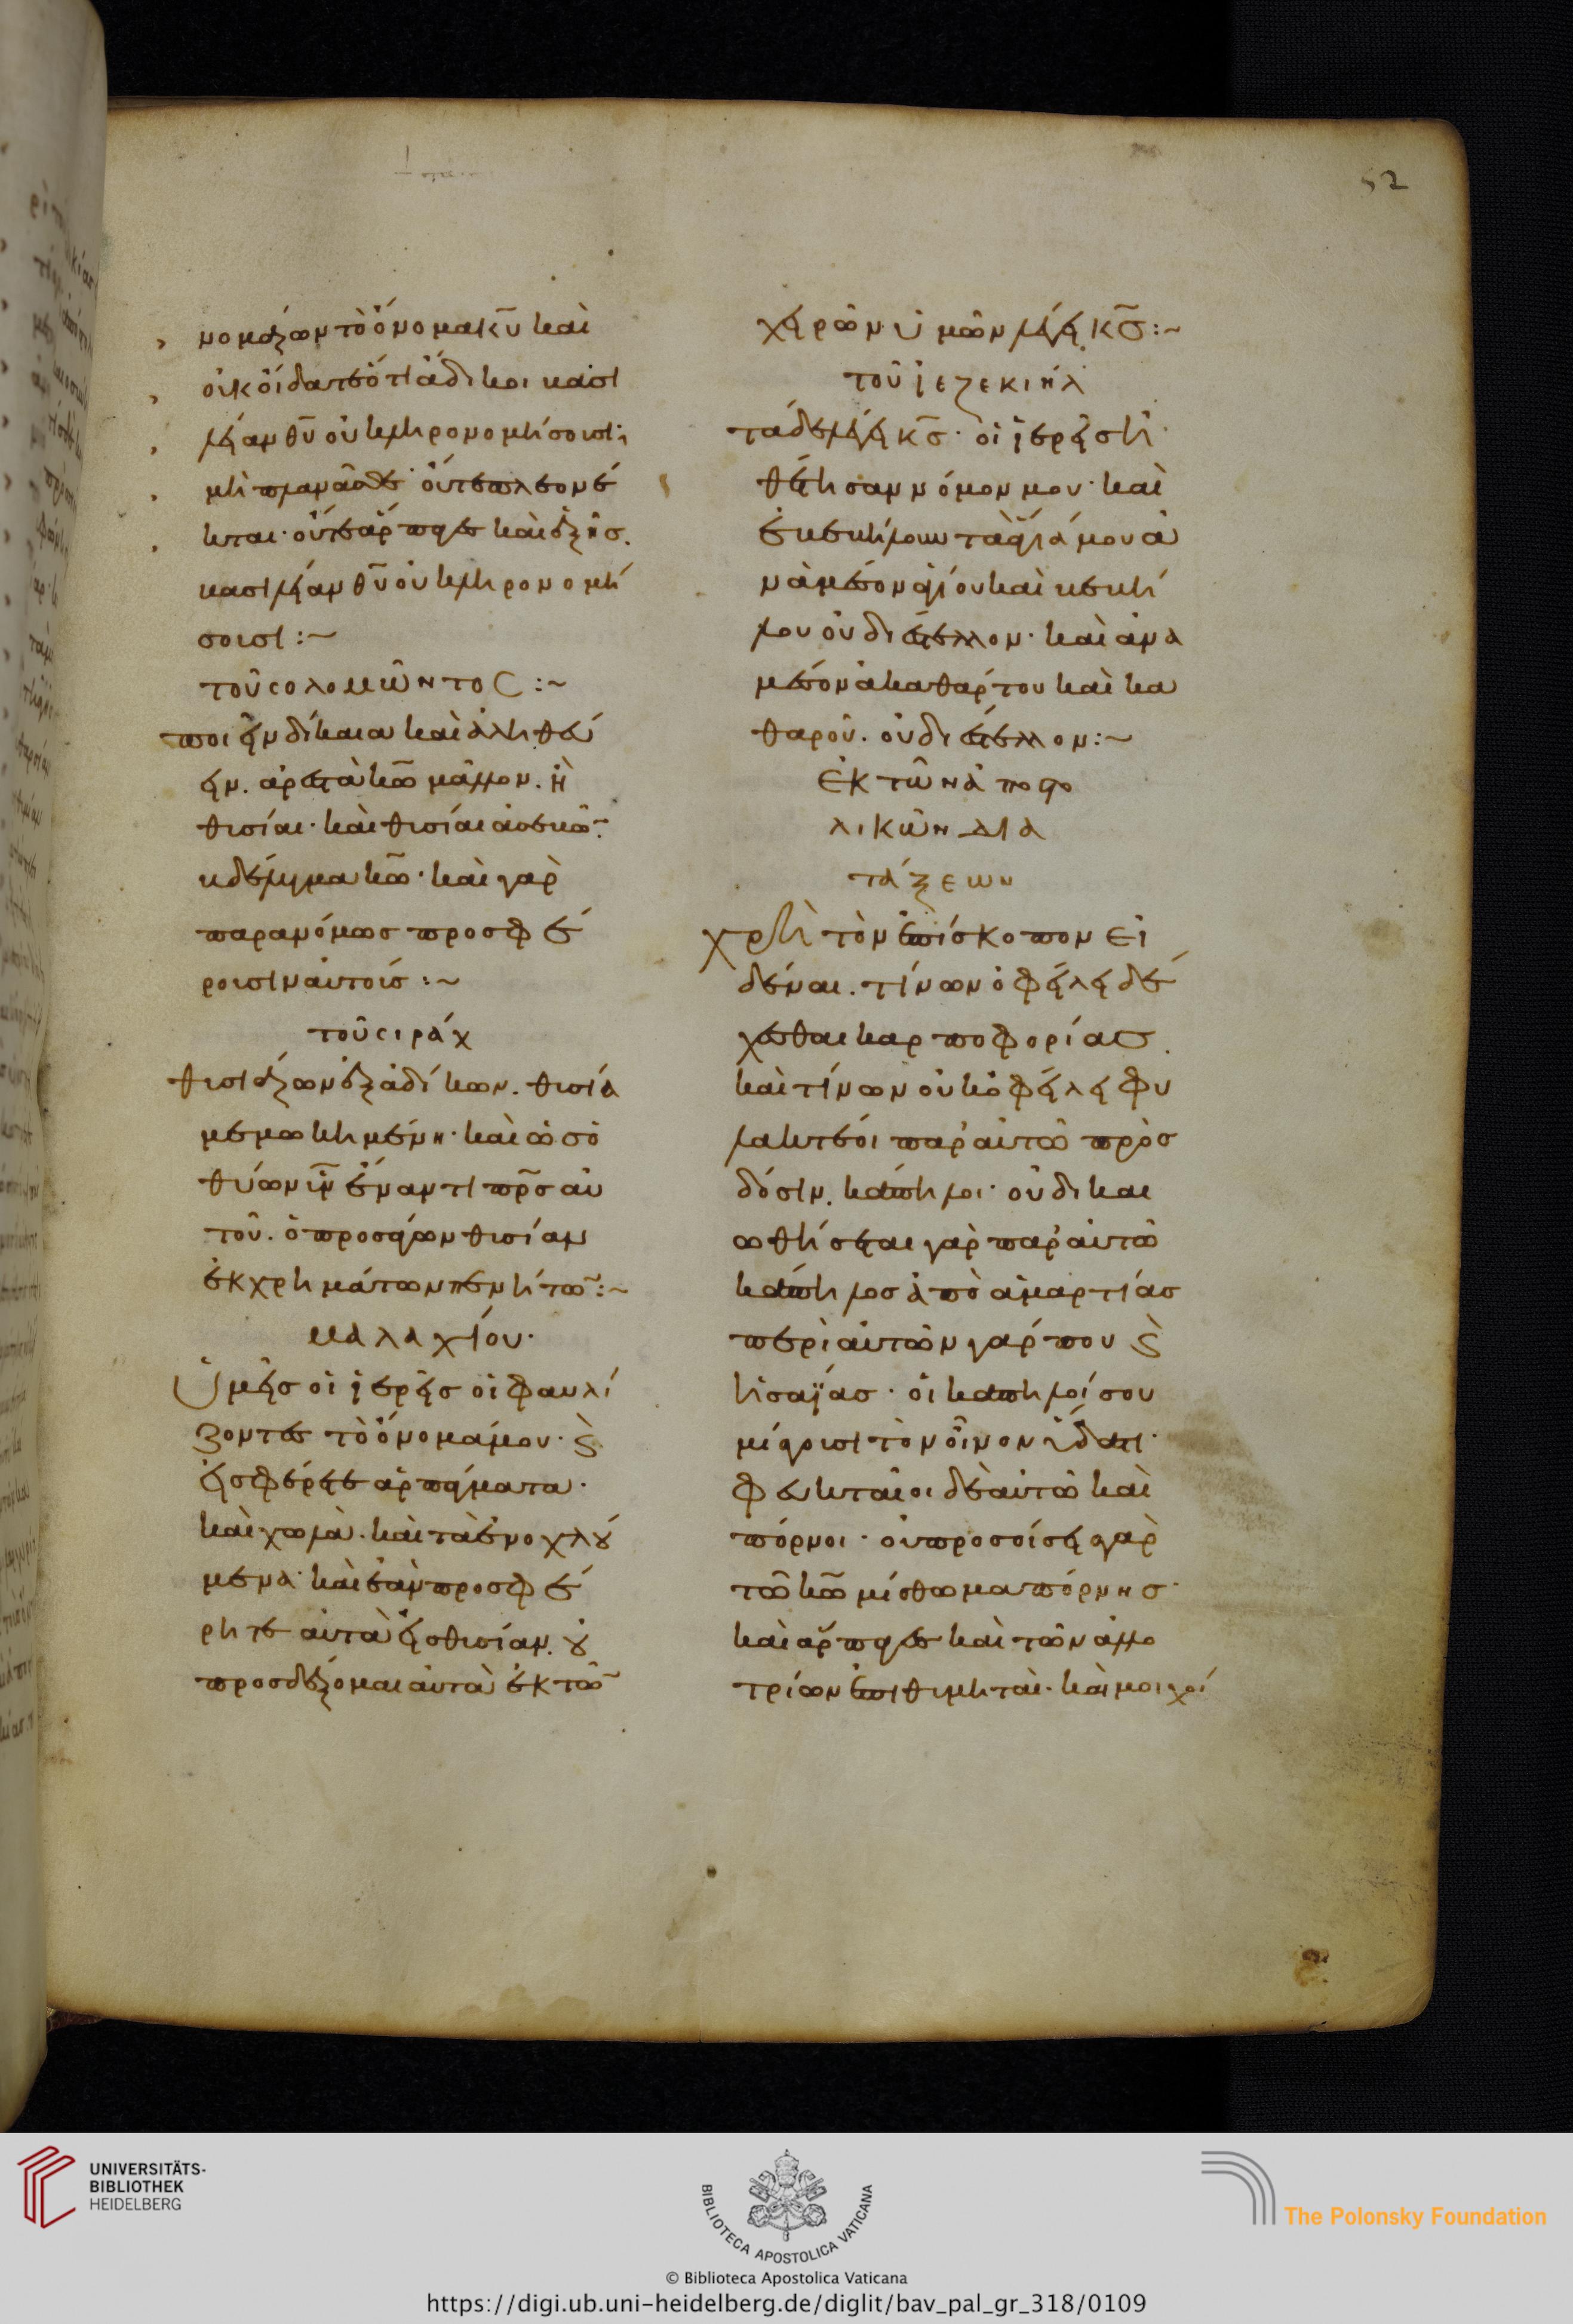 νομάζων τὸ ὄνομα κ̅υ̅ καὶ
οὐκ οἴδατε ὅτι ἄδικοι βασι
λείαν θ̅υ̅ οὐ κληρονομήσουσι;
μὴ πλανᾶσθε· οὔτε πλεονέ
κται· οὔτε ἅρπαγες καὶ ἑξῆς.
βασιλείαν θ̅υ̅ οὐ κληρονομή
σουσι:~
τοῦ σολομῶντος:~
ποιεῖν δίκαια καὶ ἀληθεύ
ειν. ἀρεστὰ κ̅ω̅ μᾶλλον. ἢ
θυσίαι· καὶ θυσίαι ἀσεβῶ̅·
βδέλυγμα κ̅ω̅· καὶ γὰρ
παρανόμως προσφέ
ρουσιν αὐτοῖς:~
τοῦ σιράχ
θυσιάζων ἐξ ἀδίκων. θυσία
μεμωκημένη· καὶ ὡς ὁ
θύων υ̅ν̅ ἔναντι π̅ρ̅ς̅ αὐ
τοῦ. ὁ προσάγων θυσίαν
ἐκ χρημάτων πενήτω̅:~
μαλαχίου·
Ὑμεῖς οἱ ἱερεῖς οἱ φαυλί
ζοντες τὸ ὄνομά μου· ϗ
εἰσφέρετε ἁρπάγματα·
καὶ χωλὰ· καὶ τὰ ἐνοχλού
μενα· καὶ ἐὰν προσφέ
ρητε αὐτὰ εἰς θυσίαν. οὐ
προσδέξομαι αὐτὰ ἐκ τῶ̅
52
χειρῶν ὑμῶν λέγει κ̅ς̅:~
τοῦ ἰεζεκιήλ
τάδε λέγει κ̅ς̅· οἱ ἱερεῖς ἠ
θέτησαν νόμον μου· καὶ
ἐβεβήλουν τὰ ἅγιά μου ἀ
νὰ μέσον ἁγίου καὶ βεβή
λου οὐ διέστελλον· καὶ ἀνα
μέσον ἀκαθάρτου καὶ κα
θαροῦ. οὐ διέστελλον:~
ἐκ τῶν ἀποστο
λικῶν δια
τάξεων
χρὴ τὸν ἐπίσκοπον εἰ
δέναι. τίνων ὀφείλει δέ
χεσθαι καρποφορίας.
καὶ τίνων οὐκ ὀφείλει φυ
λακτέοι παρ' αὐτῶ πρὸς
δόσιν. κάπηλοι· οὐ δικαι
ωθήσεται γὰρ παρ' αὐτῶ
κάπηλος ἀπὸ ἁμαρτίας
περὶ αὐτῶν γάρ που ϗ
ἡσαΐας· οἱ κάπηλοί σου
μίγουσι τὸν οἶνον ὕδατι·
φευκταῖοι δὲ αὐτῶ καὶ
πόρνοι· οὐ προσοίσει γὰρ
τῶ κ̅ω̅ μίσθωμα πόρνης·
καὶ ἅρπαγες καὶ τῶν ἀλλο
τρίων ἐπιθυμηταὶ· καὶ μοιχοί
UNIVERSITÄTS-
BIBLIOTHEK
HEIDELBERG
BIBLIOTECA APOSTOLICA VATICANA
The Polonsky Foundation
© Biblioteca Apostolica Vaticana
https://digi.ub.uni-heidelberg.de/diglit/bav_pal_gr_318/0109